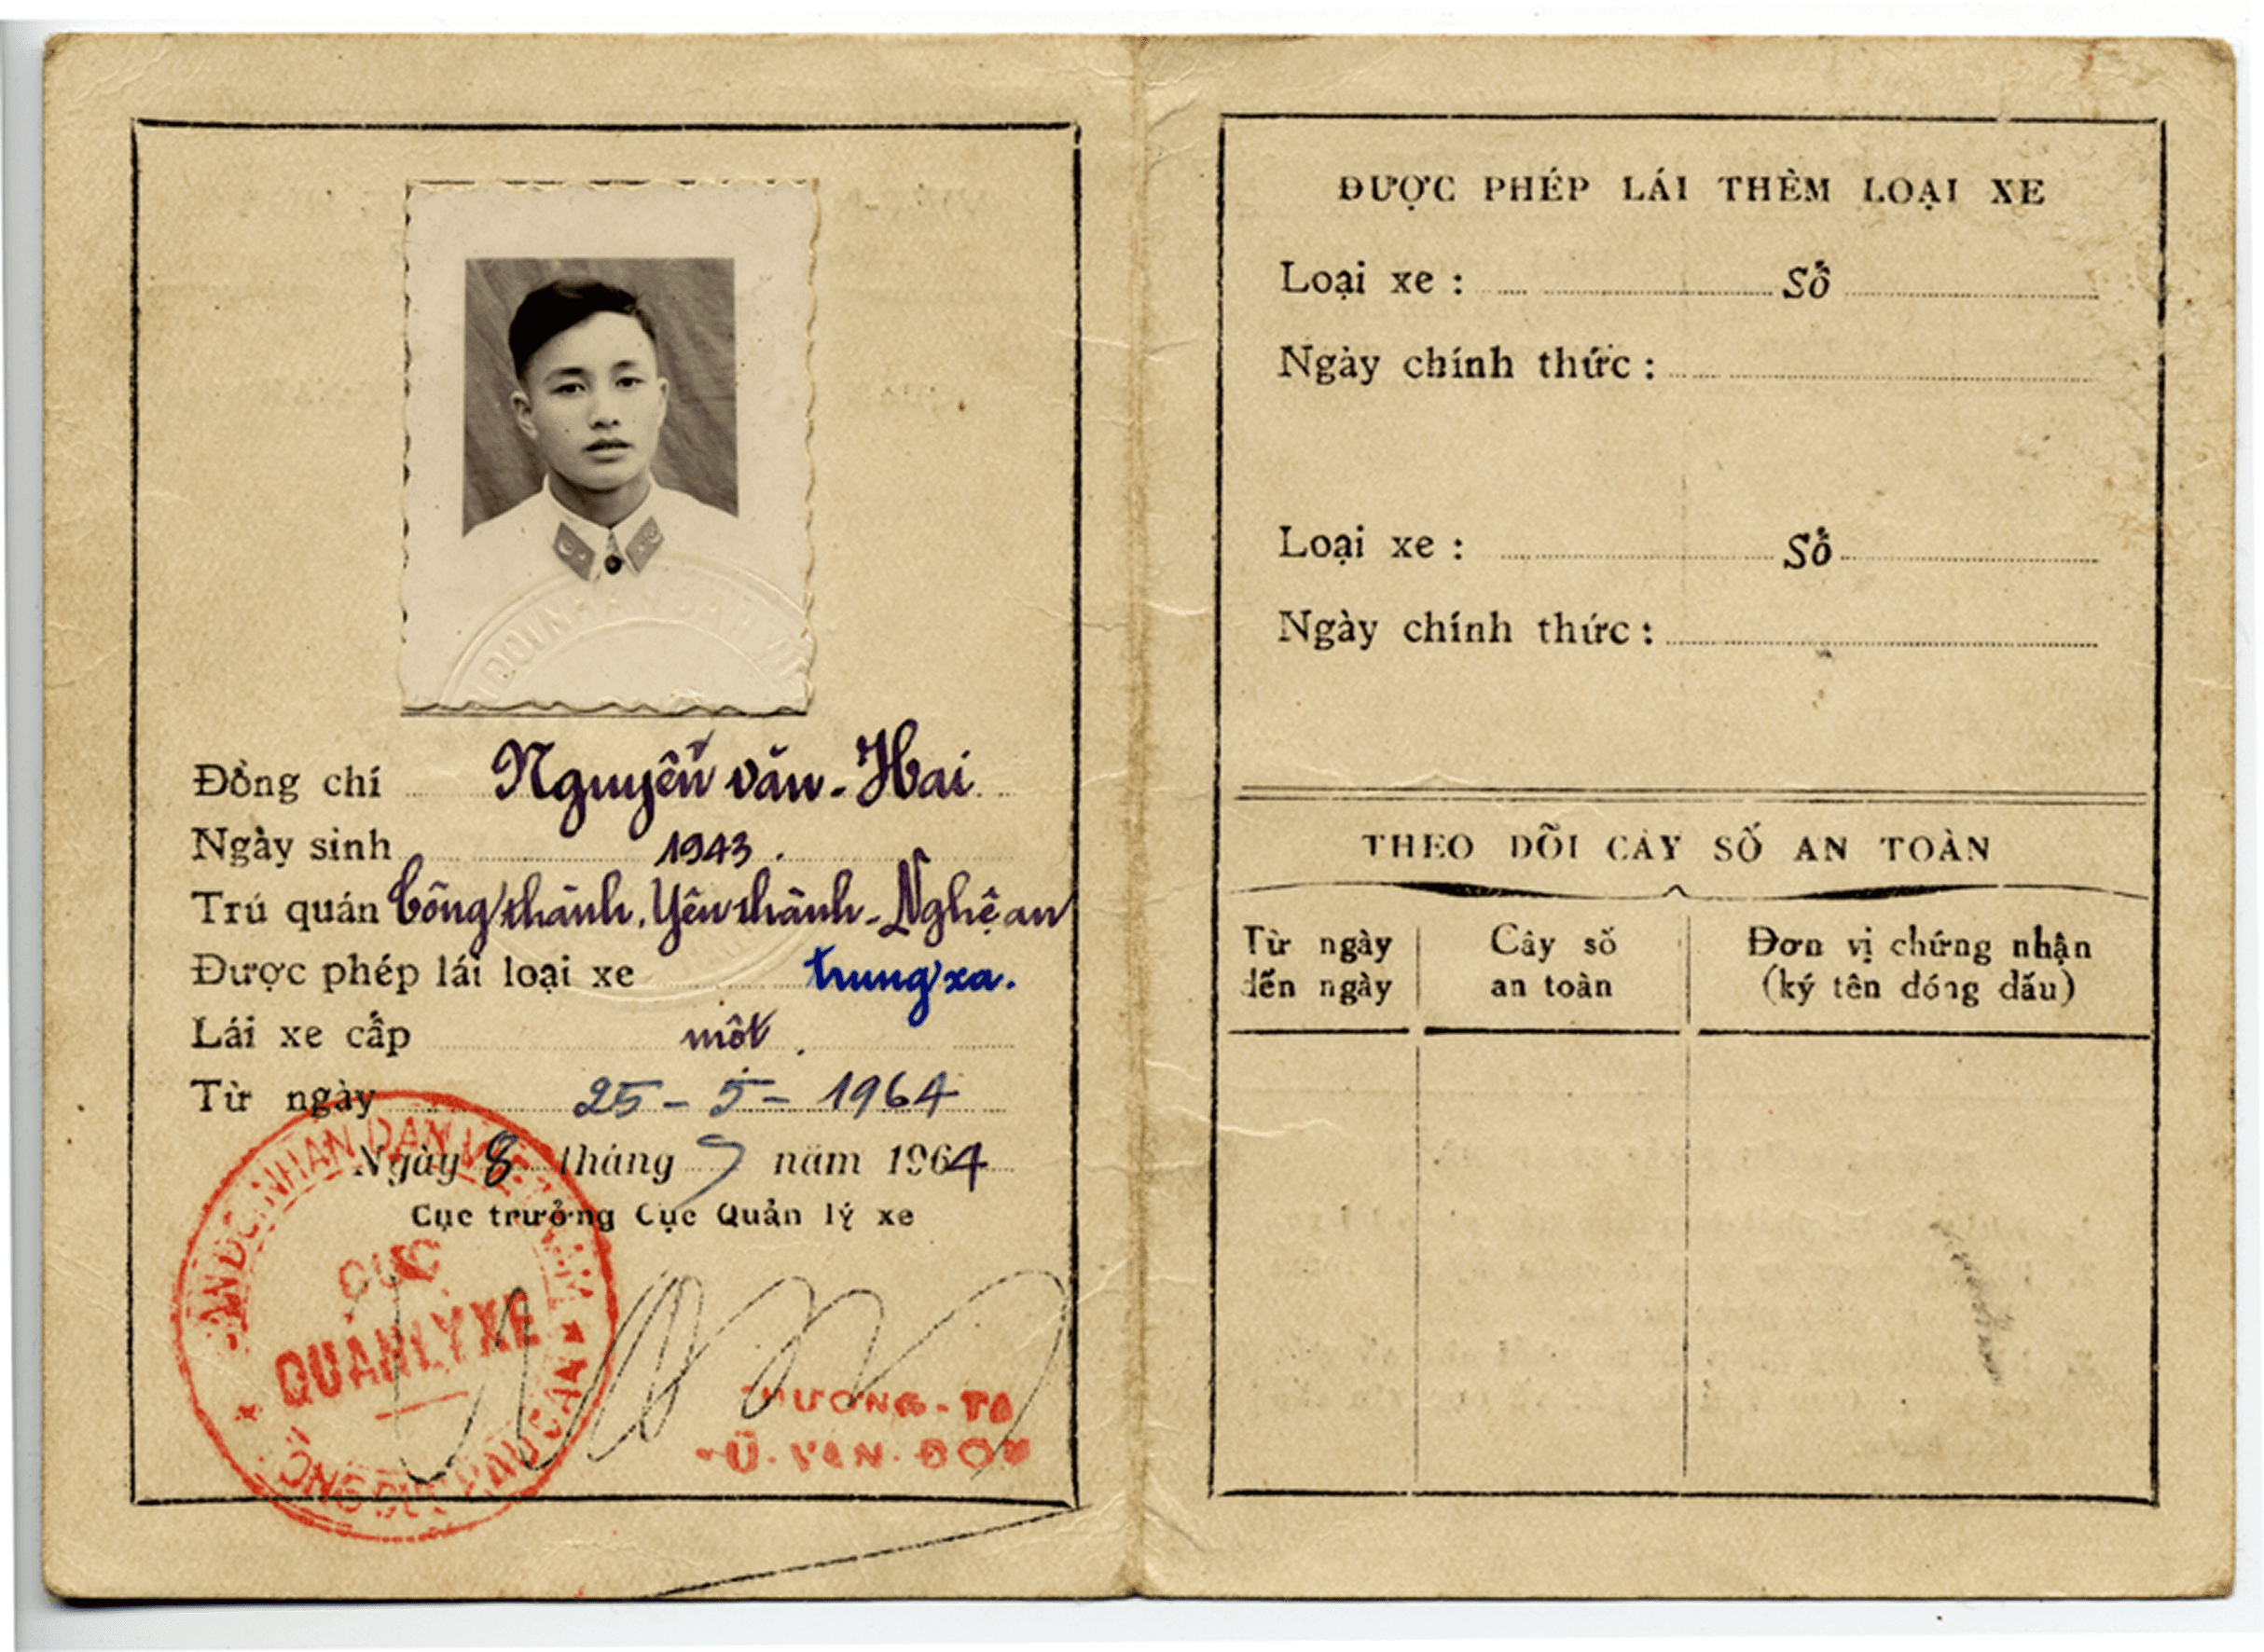 Đồng chí Nguyễn văn-Hai
Ngày sinh 1943.
Trú quán Công thành. Yên thành-Nghệ an
Được phép lái loại xe trung xa.
Lái xe cấp một.
Từ ngày 25-5-1964
Ngày 8 tháng 7 năm 1964
Cục trưởng Cục Quản lý xe
CỤC
QUẢN LÝ XE
VĂN ĐÔN
ĐƯỢC PHÉP LÁI THÊM LOẠI XE
Loại xe : Số
Ngày chính thức :
Loại xe : Số
Ngày chính thức :
THEO DÕI CÂY SỐ AN TOÀN
Từ ngày đến ngày
Cây số an toàn
Đơn vị chứng nhận (ký tên đóng dấu)